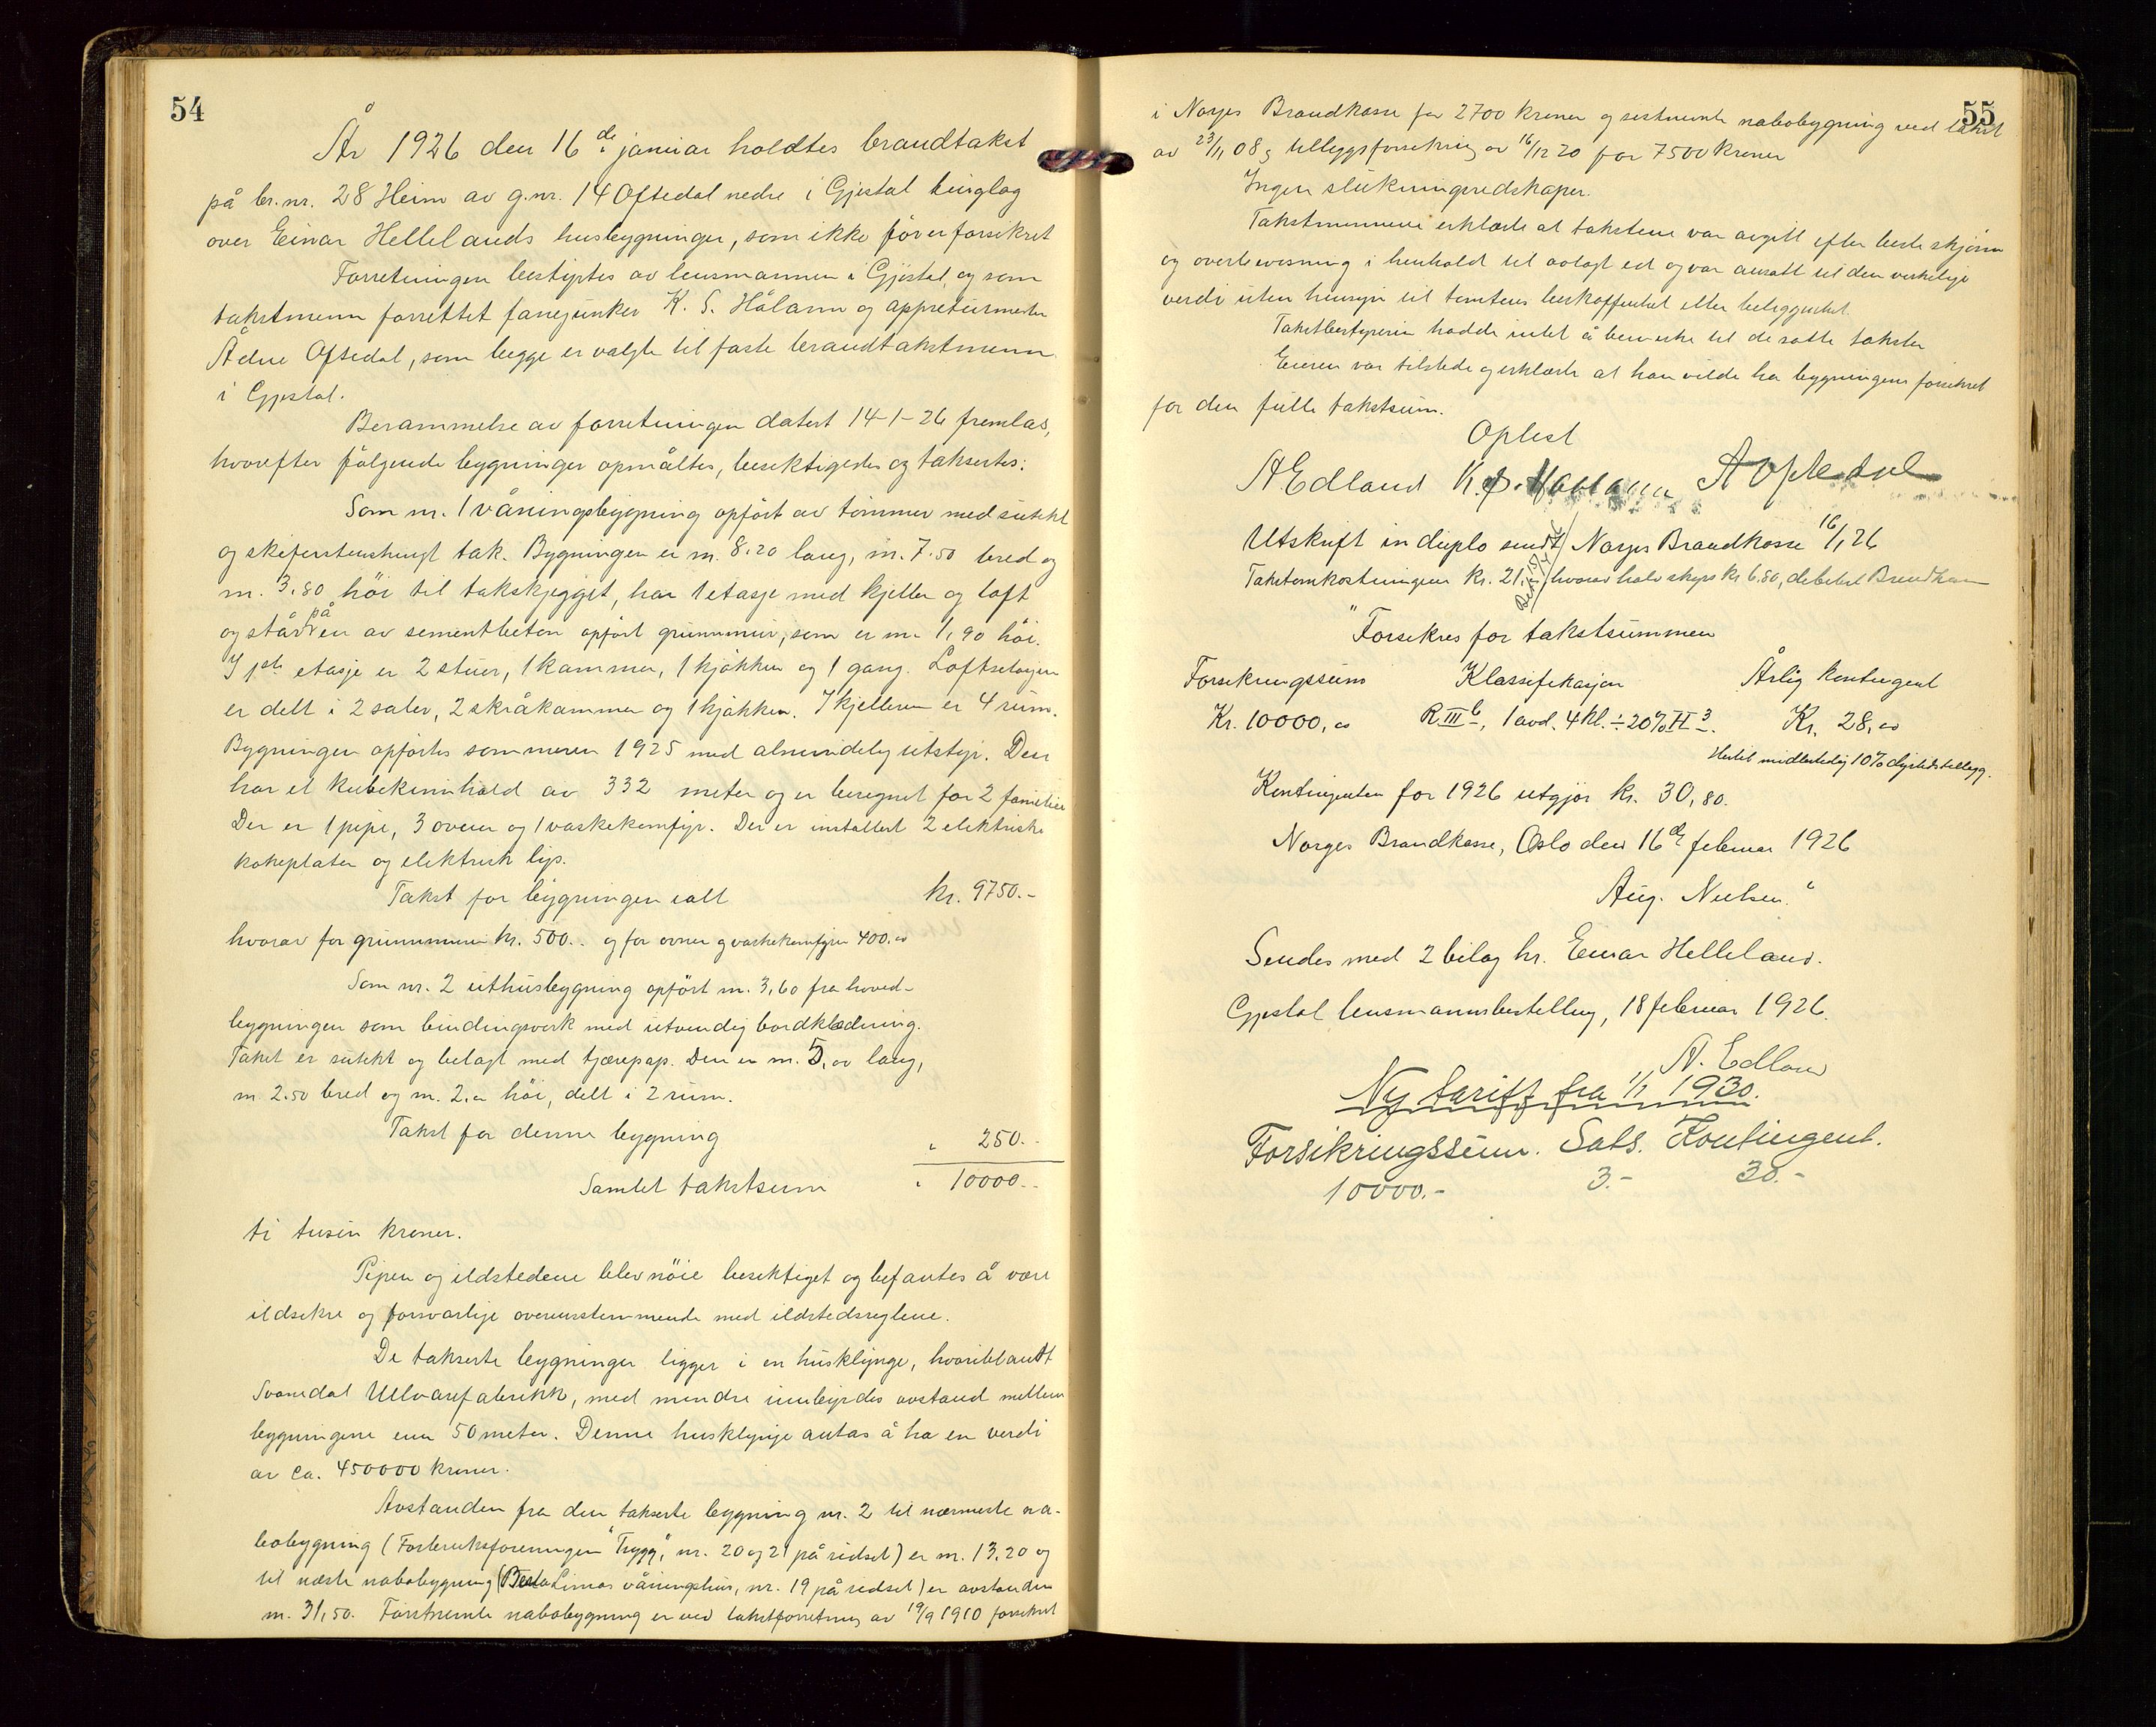 54
År 1926 den 16de januar holdtes brandtakst
på br.nr. 28 Heim av g.nr. 14 Oftedal nedre i Gjestal tinglag
over Einar Hellelands husbygninger, som ikke för er forsikret
Forretningen bestyrtes av lensmannen i Gjestal, og som
takstmenn forrettet fanejunker K. S. Hålann og appreturmester
Ådne Oftedal, som begge er valgte til faste brandtakstmenn
i Gjestal.
Berammelse av forretningen datert 14-1-26 fremlas,
hvorefter fölgende bygninger opmåltes, besiktigedes og taksertes:
Som nr. 1 våningsbygning opfört av tömmer med sutekt
og skiferstenshengt tak. Bygningen er m. 8.20 lang, m. 7.50 bred og
m. 3,80 höi til takskjegget, har 1 etasje med kjeller og loft
og står på en av sementbeton opfört grunnmur, som er m. 1,90 höi.
I 1ste etasje er 2 stuer, 1 kammer, 1 kjökken og 1 gang. Loftsetasjen
er delt i 2 saler, 2 skråkammer og 1 kjökken. I kjelleren er 4 rum.
Bygningen opfortes sommeren 1925 med almindelig utstyr. Den
har et kubikkinnhold av 332 meter og er beregnet for 2 familier
Der er 1 pipe, 3 ovner og 1 vaskekomfyr. Der er installert 2 elektriske
kokeplater og elektrisk lys.
Takst for bygningen ialt kr. 9750.-
hvorav for grunnmuren kr. 500.- og for ovner og vaskekomfyren 400.00
Som nr. 2 uthusbygning opfört m. 3,60 fra hoved-
bygningen som bindingsverk med utvendig bordklædning.
Taket er sutekt og belagt med tjærepap. Den er m. 5,00 lang,
m 2.50 bred og m. 2.00 höi, delt i 2 rum.
Takst for denne bygning " 250.-
Samlet takstsum " 10000.-
ti tusen kroner.
Pipen og ildstedene blev nöie besiktiget og befantes å være
ildsikre og forsvarlige overensstemmende med ildstedsreglene.
De takserte bygninger ligger i en husklynge, hvoriblandt
Svanedal Ullvarefabrikk, med mindre innbyrdes avstand mellem
bygningene enn 50 meter. Denne husklynge antas å ha en verdi
av ca. 450000 kroner.
Avstanden fra den takserte bygning nr. 2 til nærmeste na-
bobygning (Forbruksforeningen "Trygg", nr. 20 og 21 på ridset) er m. 13,20 og
til næste nabobygning (Berta Limas våningshus, nr. 19 på ridset) er avstanden
m. 31,50. Förstnevnte nabobygning er ved takstforretning av 19/9 1910 forsikret
55
i Norges Brandkasse for 2700 kroner og sistnevnte nabobygning ved takst
av 23/11 08 og tilleggsforsikring av 16/12 20 for 7500 kroner
Ingen slukningsredskaper.
Takstmennene erklærte at takstene var avgitt efter beste skjönn
og overbevisning i henhold til avlagt ed og var ansatt til den virkelige
verdi uten hensyn til tomtens beskaffenhet eller beliggenhet.
Takstbestyreren hadde intet å bemerke til de satte takster
Eieren var tilstede og erklærte at han vilde ha bygningene forsikret
for den fulle takstsum.
Oplest
A Edland K. S. Hålann A Oftedal
Utskrift in duplo sendt Norges Brandkasse 16/1 26
Takstomkostningene kr. 21.15 hvorav halv skyss kr 6.80, debitert Brandkassen
"Forsikres for takstsummen
Forsikringssum Klassifikasjon Årlig kontingent
Kr. 10000,00 R III b, 1 avd. 4 kl. ÷ 20% H 3. Kr. 28,00
Hertil midlertidig 10% dyrtidstillegg.
Kontingenten for 1926 utgjör kr. 30,80.
Norges Brandkasse, Oslo den 16de februar 1926
Aug. Nielsen."
Sendes med 2 bilag hr. Einar Helleland.
Gjestal lensmannsbestilling, 18 februar 1926.
A. Edland
Ny tariff fra 1/1 1930.
Forsikringssum. Sats. Kontingent.
10000.- 3.- 30.-